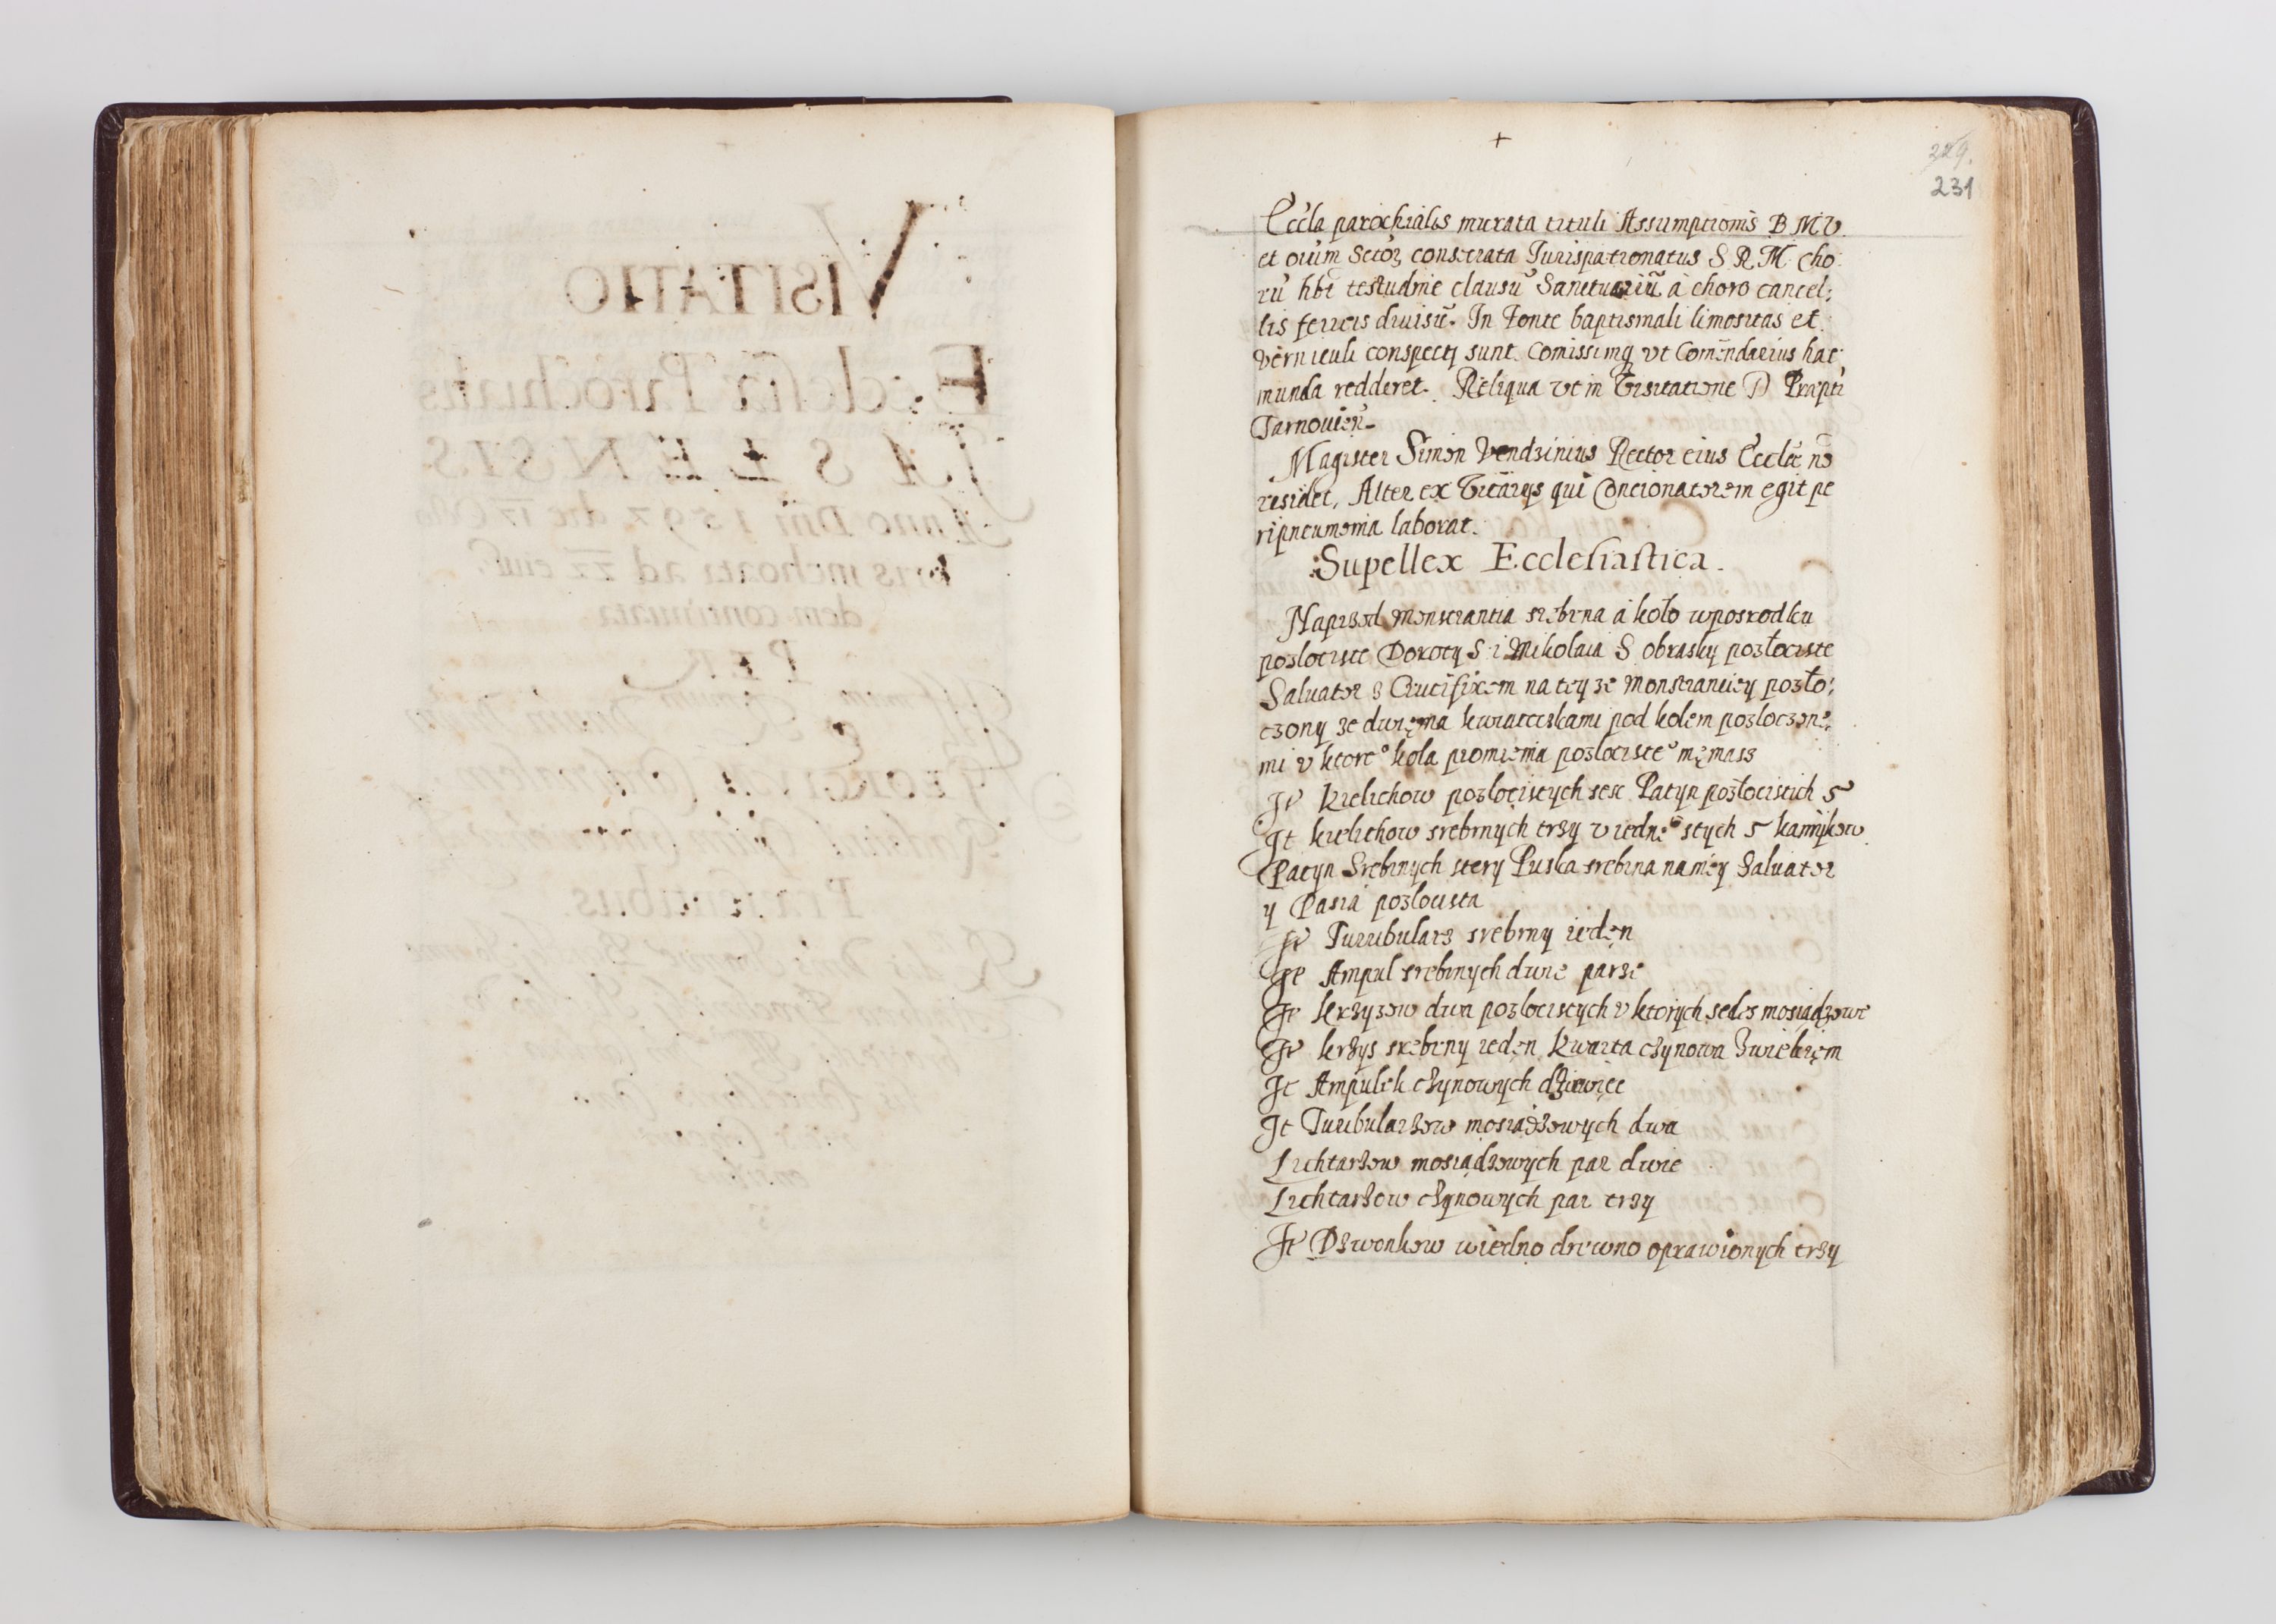 VISITATIO
Ecclesiæ Parochialis
JASLENSIS
Anno Dni 1597 die 17 Octo
bris inchoata ad 22 eius
dem continuata
PER
Præsentibus
+
229.
231
Eccla parochialis murata tituli Assumptionis B M V.
et oium Sctoꝝ consecrata Jurispatronatus S R M. Cho
rũ hẽt testudine clausũ Sanctuariũ a choro cancel:
lis ferreis diuisũ. In Fonte baptismali limositas et
vermiculi conspecti sunt. Comissimꝗ vt Comẽndarius hæc
munda redderet. Reliqua vt in Visitatione D Præpti
Tarnouien̄.
Magister Simon Vendzinius Rector eius Ecclæ nõ
residet, Alter ex Vicarijs qui Concionatorem egit pe
ripneumonia laborat.
Supellex Ecclesiastica.
Naprzod Monstrantia srebrna á koło wposrodku
pozłociste Doroty S i Mikolaia S obrasky pozłociste
Saluator s Crucifixem na tey ze Monstranciey pozło:
czony ze dwiema kwiateczkami pod kolem pozloczone:
mi v ktore° kola promienia pozlociste° niemasz
It Kielichow pozłocistych sesc Patyn pozłocistich 5
It kielichow srebrnych trzy v iedne° stych 5 kamykow
Patyn Srebrnych stery Puska srebrna na niey Saluator
y Pasia pozlocista
It Turribularz srebrny ieden
It Ampul srebrnych dwie parze
It krzyzow dwa pozlocistych v ktorych sedes mosiadzowe
It krzys srebrny ieden Kwarta czynowa zwiekiem
It Ampulek czynowych dziewiec
It Turribularzow mosiadzowych dwa
Lichtarzow mosiądzowych par dwie
Lichtarzow czynowych par trzy
It Dzwonkow wiedno drewno oprawionych trzy